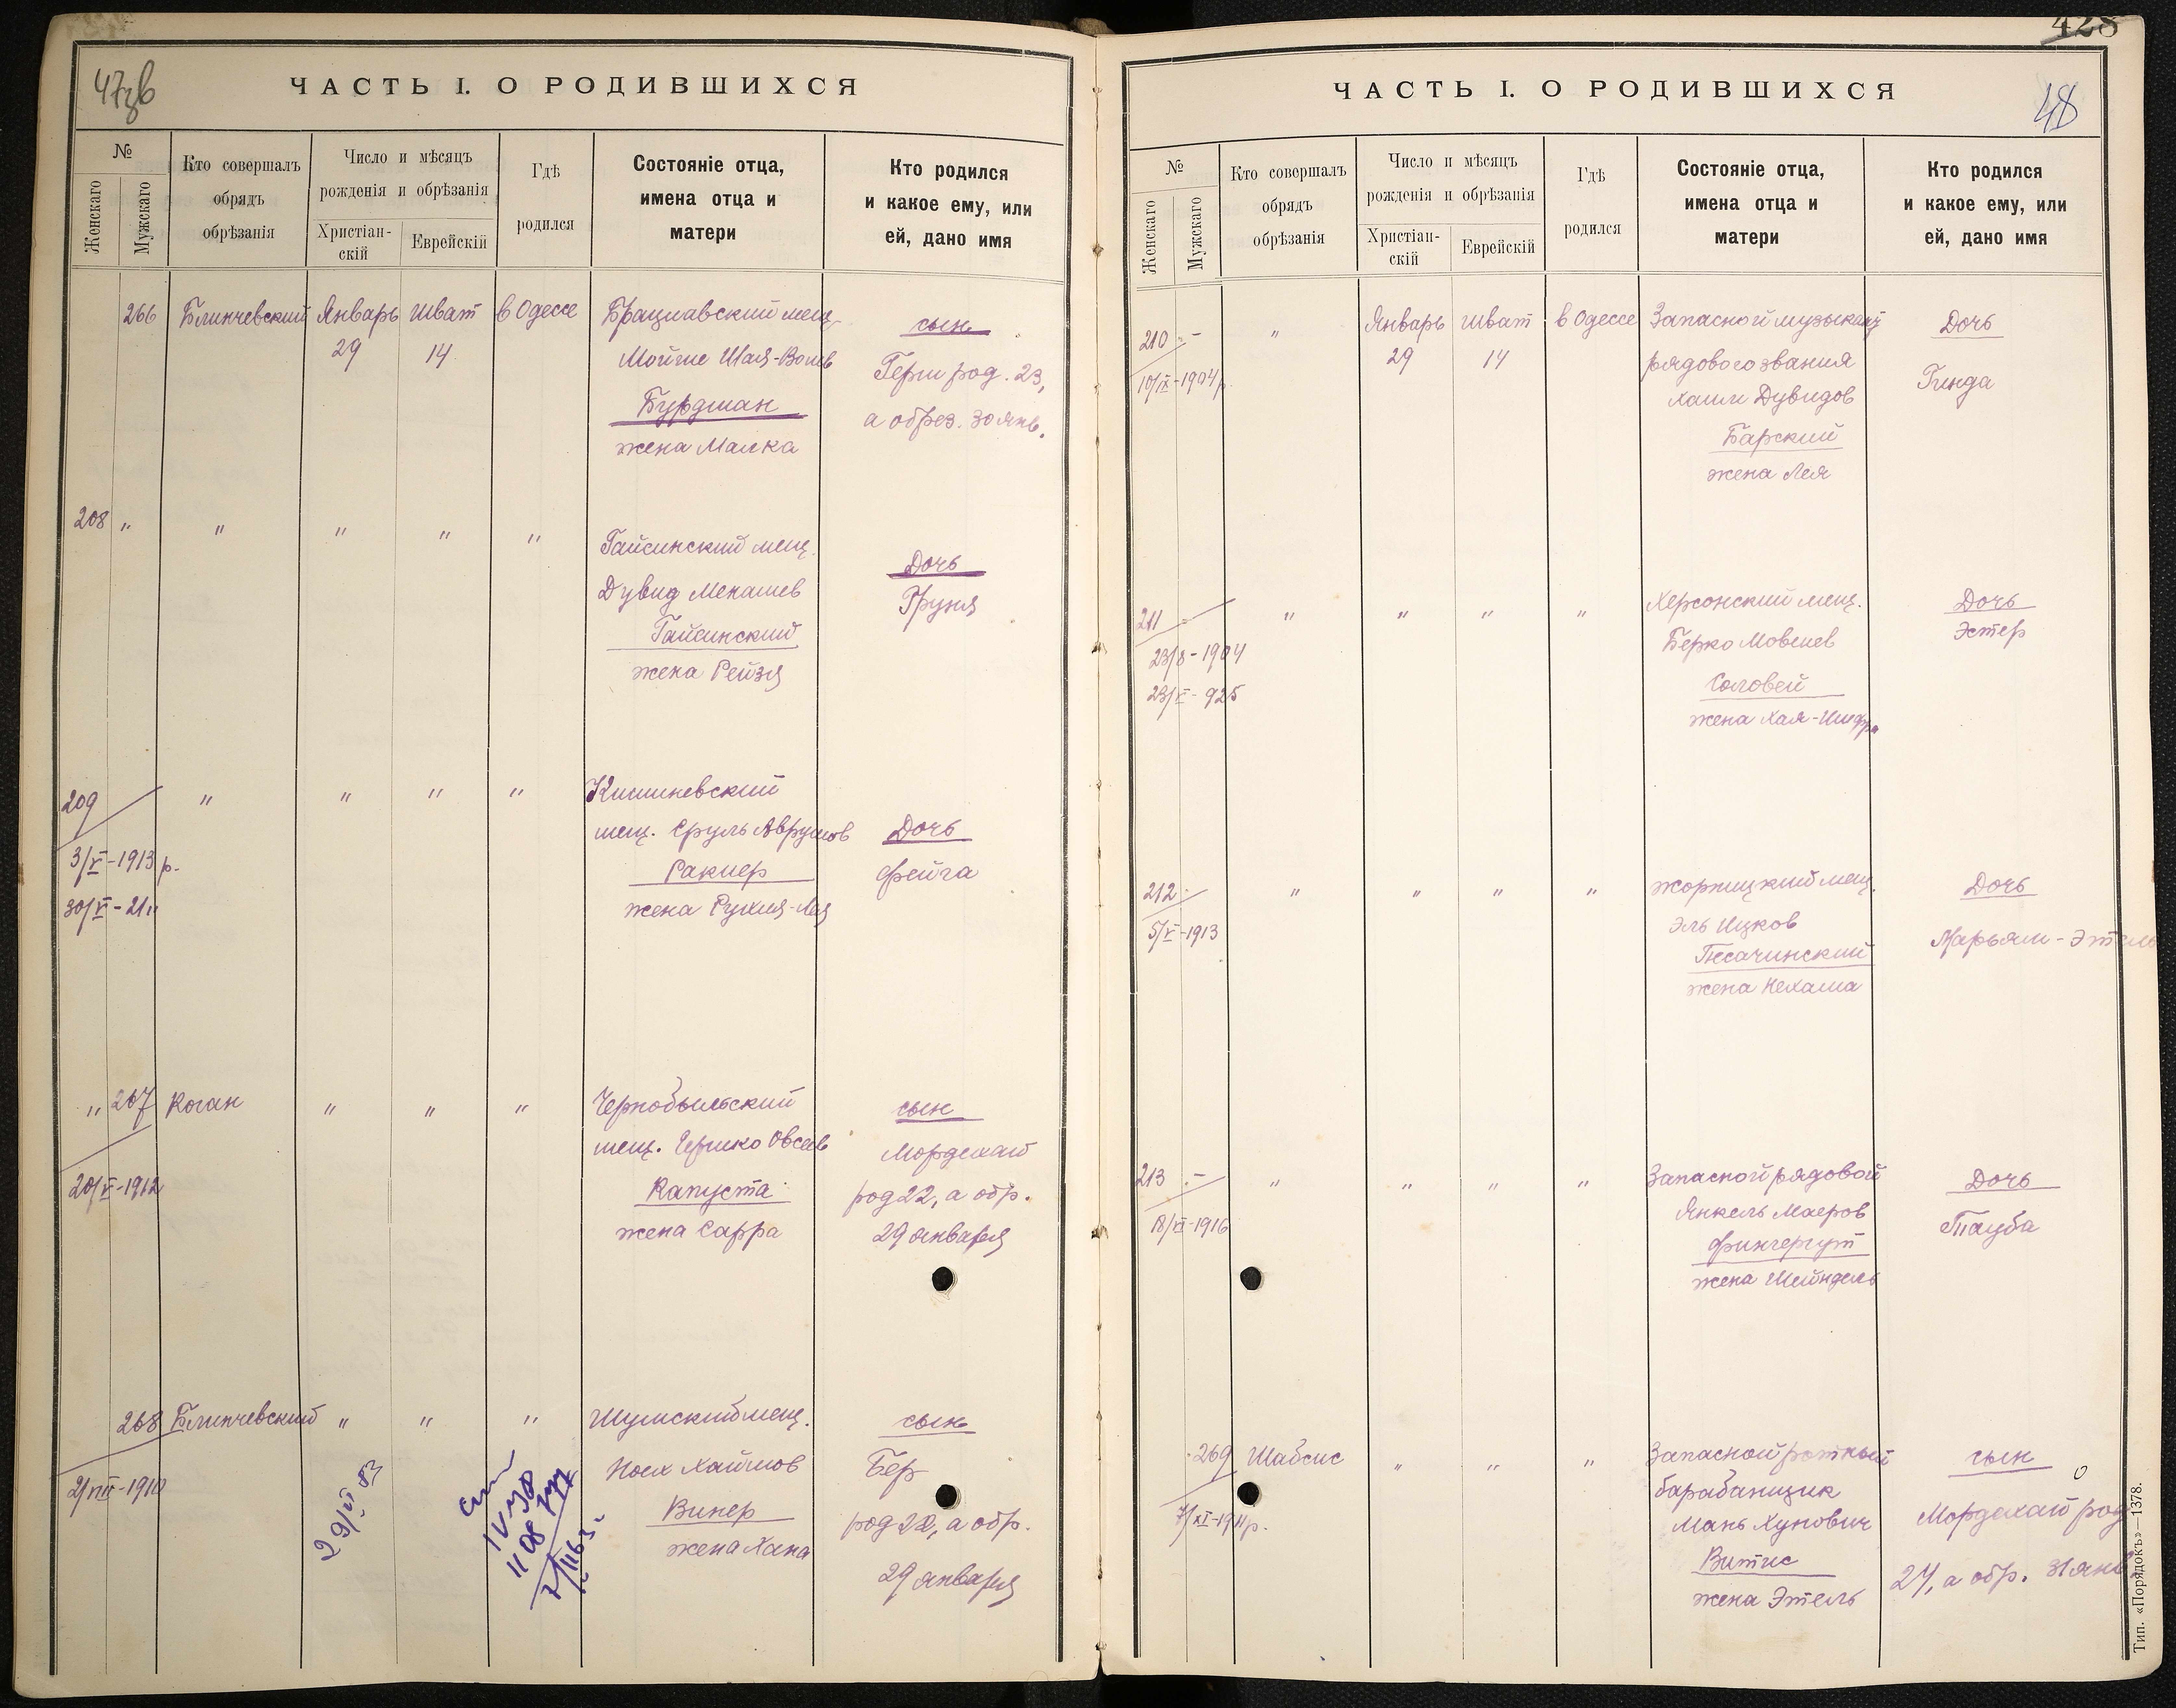 47зв
ЧАСТЬ I. О РОДИВШИХСЯ
№
Женскаго
Мужскаго
Кто совершалъ
обрядъ
обрѣзанія
Число и мѣсяцъ
рожденія и обрѣзанія
Христіан-
скій
Еврейскій
Гдѣ
родился
Состояніе отца,
имена отца и
матери
Кто родился
и какое ему, или
ей, дано имя
266 Блинчевский Январь Шват в Одессе Брацлавский мещ.
29 14
Мойше Шая-Волев
Бурдман
жена Малка
сын
Герш род. 23,
а обрез. 30 янв.
208 " " " " "
Гайсинский мещ.
Дувид Менашев
Гайсинский
жена Рейзя
Дочь
Груня
209 " " " "
3/V-1913 р.
30/V-21 "
Кишиневский
мещ. Сруль Аврумов
Ракнер
жена Рухля-Лея
Дочь
Фейга
" 267 Коган " " "
20/V-1912
Чернобыльский
мещ. Гершко Овсеев
Капуста
жена Сарра
сын
Мордехай
род 22, а обр.
29 января
268 Блинчевский " " "
2/VIII-1910
29/VI 83
Шумский мещ.
Носх Хаймов
Винер
жена Хана
сын
Бер
род 22, а обр.
29 января
428
48
ЧАСТЬ I. О РОДИВШИХСЯ
№
Женскаго
Мужскаго
Кто совершалъ
обрядъ
обрѣзанія
Число и мѣсяцъ
рожденія и обрѣзанія
Христіан-
скій
Еврейскій
Гдѣ
родился
Состояніе отца,
имена отца и
матери
Кто родился
и какое ему, или
ей, дано имя
210 - " Январь Шват в Одессе
29 14
10/IX-1904 р.
Запасной музыкант
рядового звания
Хаим Дувидов
Барский
жена Лея
Дочь
Гинда
211 - " " " "
23/8-1904
23/V-925
Херсонский мещ.
Берко Мовшев
Соловей
жена Хая-Шифра
Дочь
Эстер
212 " " " "
5/V-1913
Жорнищкий мещ.
Эль Ицков
Песочинский
жена Нехама
Дочь
Марьям-Этель
213 - " " " "
18/VI-1916
Запасной рядовой
Янкель Маеров
Фингергут
жена Шейндель
Дочь
Тауба
269 Шабсис " " "
7/XI-1911 р.
Запасной ротный
барабанщик
Мань Хунович
Витис
жена Этель
сын
Мордехай род
24, а обр. 31 янв.
Тип. «Порядокъ»—1378.